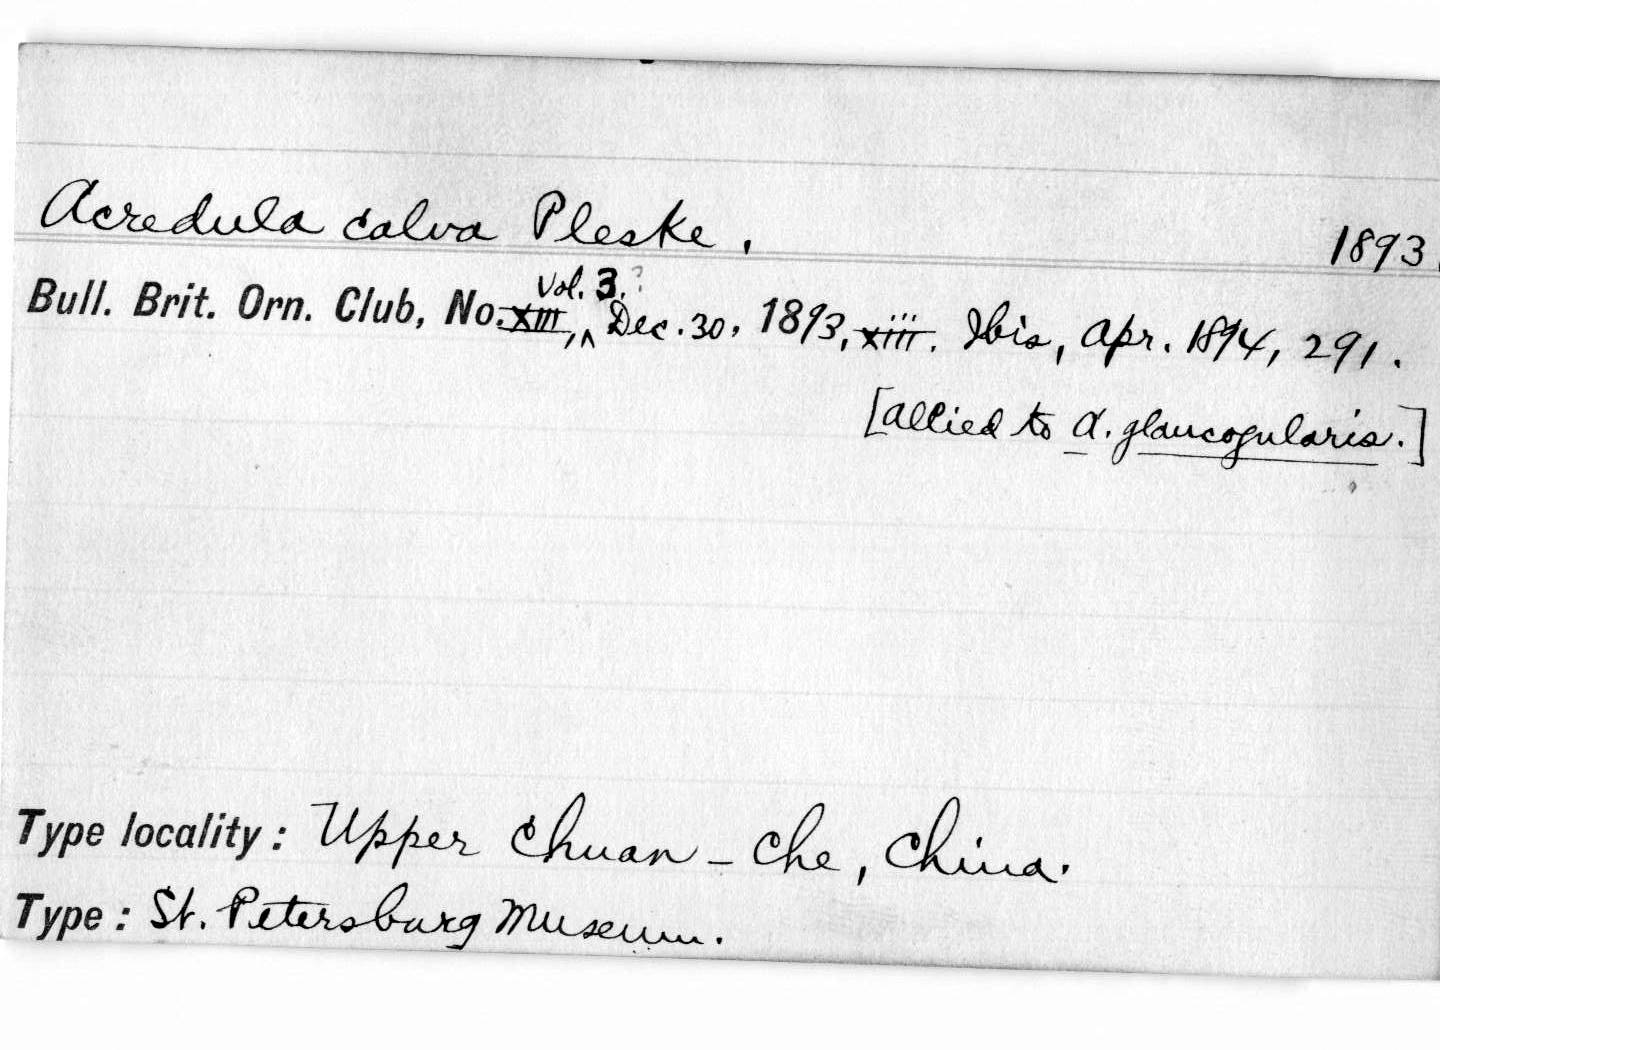 Acredula calva Pleske. 1893.
Bull. Brit. Orn. Club, No. XIII, Vol. 3.? Dec. 30, 1893, xiii. Ibis, Apr. 1894, 291.
[allied to A. glaucogularis.]
Type locality: Upper Chuan-Che, China.
Type: St. Petersburg Museum.